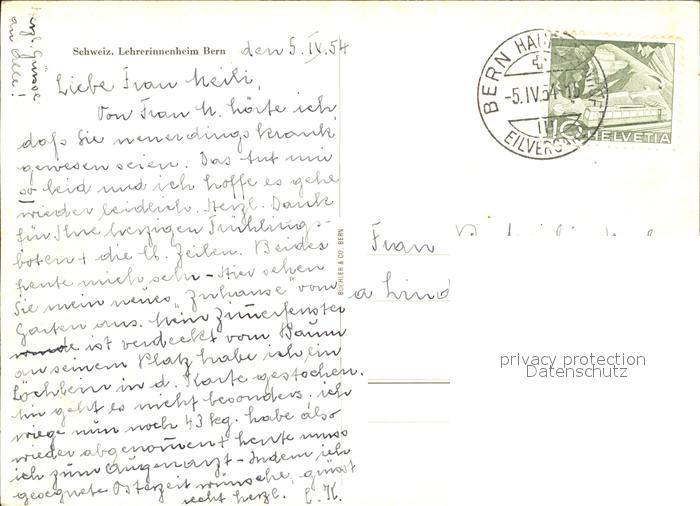 Herzl. Grüsse
an alle!
Schweiz. Lehrerinnenheim Bern den 5. IV. 54
Liebe Frau Meili,
Von Frau M. hörte ich
dass Sie neuerdings krank
gewesen seien. Das tut mir
so leid und ich hoffe es gehe
wieder leidlich. Herzl. Dank
für Ihre herzigen Frühlings-
boten + die lb. Zeilen. Beides
freute mich sehr – Hier sehen
Sie mein neues "Zuhause" vom
Garten aus. Mein Zimerfenster
ist verdeckt vom Baum
an seinem Platz habe ich ein
Löchlein in d. Karte gestochen.
Mir geht es nicht besonders. ich
wiege nun noch 43 kg. habe also
wieder abgenomen + heute muss
ich zum Augenarzt – Indem ich
gesegnete Osterzeit wünsche, grüsst
recht herzl. E. K.
BÜCHLER & CO. BERN
BERN
-5.IV.54
HELVETIA
10
Frau
a Lind
privacy protection
Datenschutz